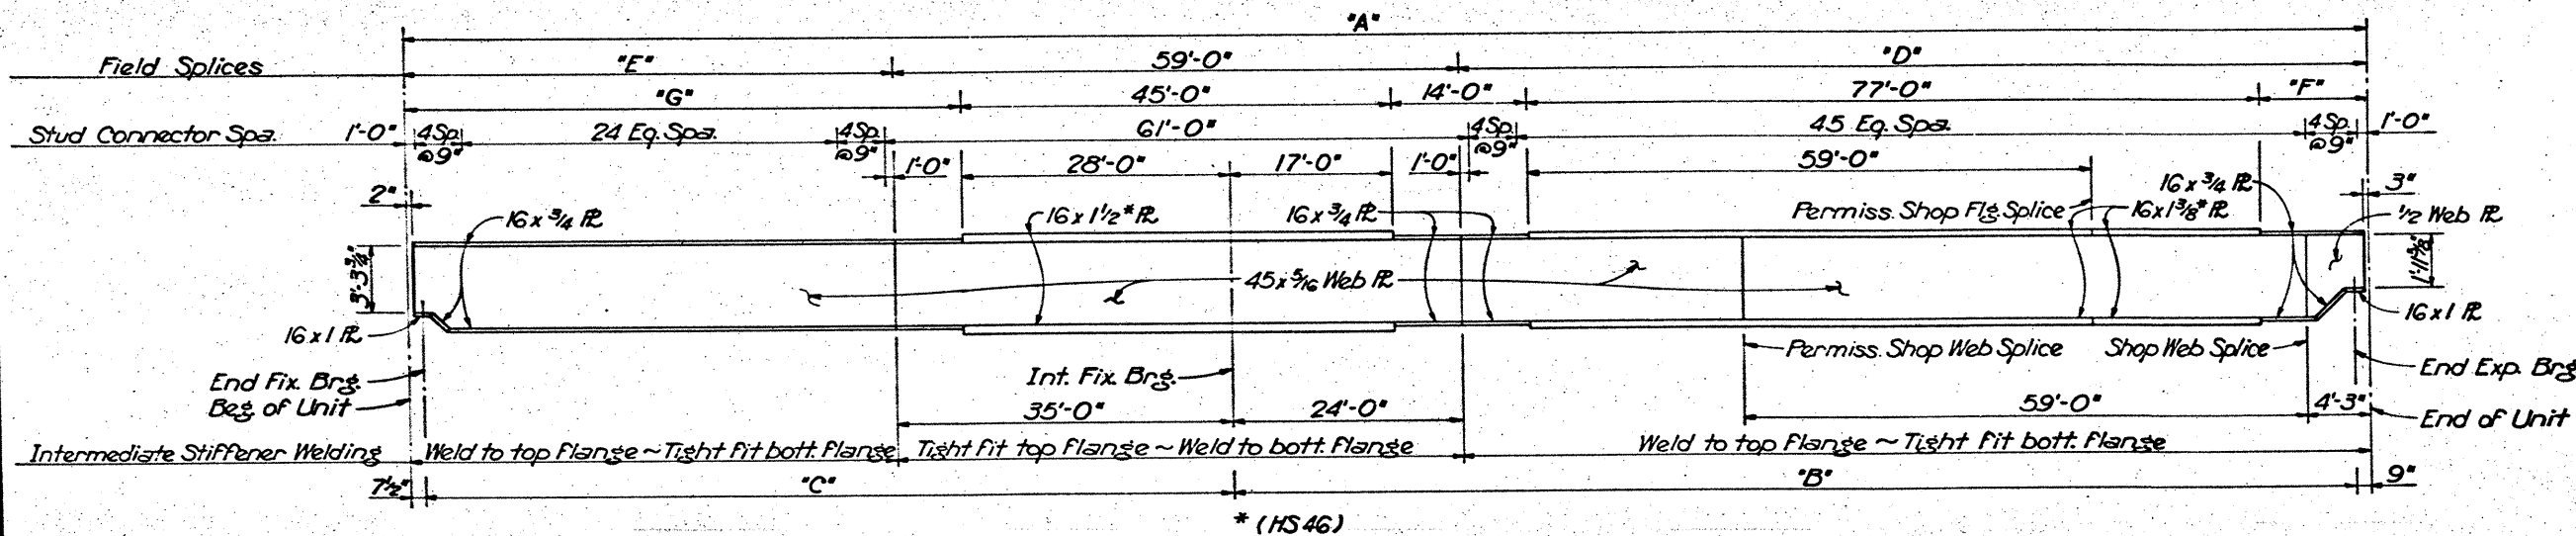 "A"
Field Splices "E" 59'-0" "D"
"G" 45'-0" 14'-0" 77'-0" "F"
Stud Connector Spa. 1'-0" 4 Sp. @ 9" 24 Eq. Spa. 4 Sp. @ 9" 61'-0" 4 Sp. @ 9" 45 Eq. Spa. 4 Sp. @ 9" 1'-0"
1'-0" 28'-0" 17'-0" 1'-0" 59'-0"
2" 16 x 3/4 PL 3"
16 x 3/4 PL 16 x 1 1/2* PL 16 x 3/4 PL Permiss. Shop Flg. Splice 16 x 1 3/8* PL 1/2 Web PL
3'-3 3/4" 45 x 5/16 Web PL 1'-11 5/8"
16 x 1 PL 16 x 1 PL
Permiss. Shop Web Splice Shop Web Splice
End Fix. Brg. Int. Fix. Brg. End Exp. Brg.
Beg. of Unit 35'-0" 24'-0" 59'-0" 4'-3" End of Unit
Intermediate Stiffener Welding Weld to top flange ~ Tight fit bott. flange Tight fit top flange ~ Weld to bott. flange Weld to top flange ~ Tight fit bott. flange
7 1/2" "C" "B" 9"
* (HS 46)